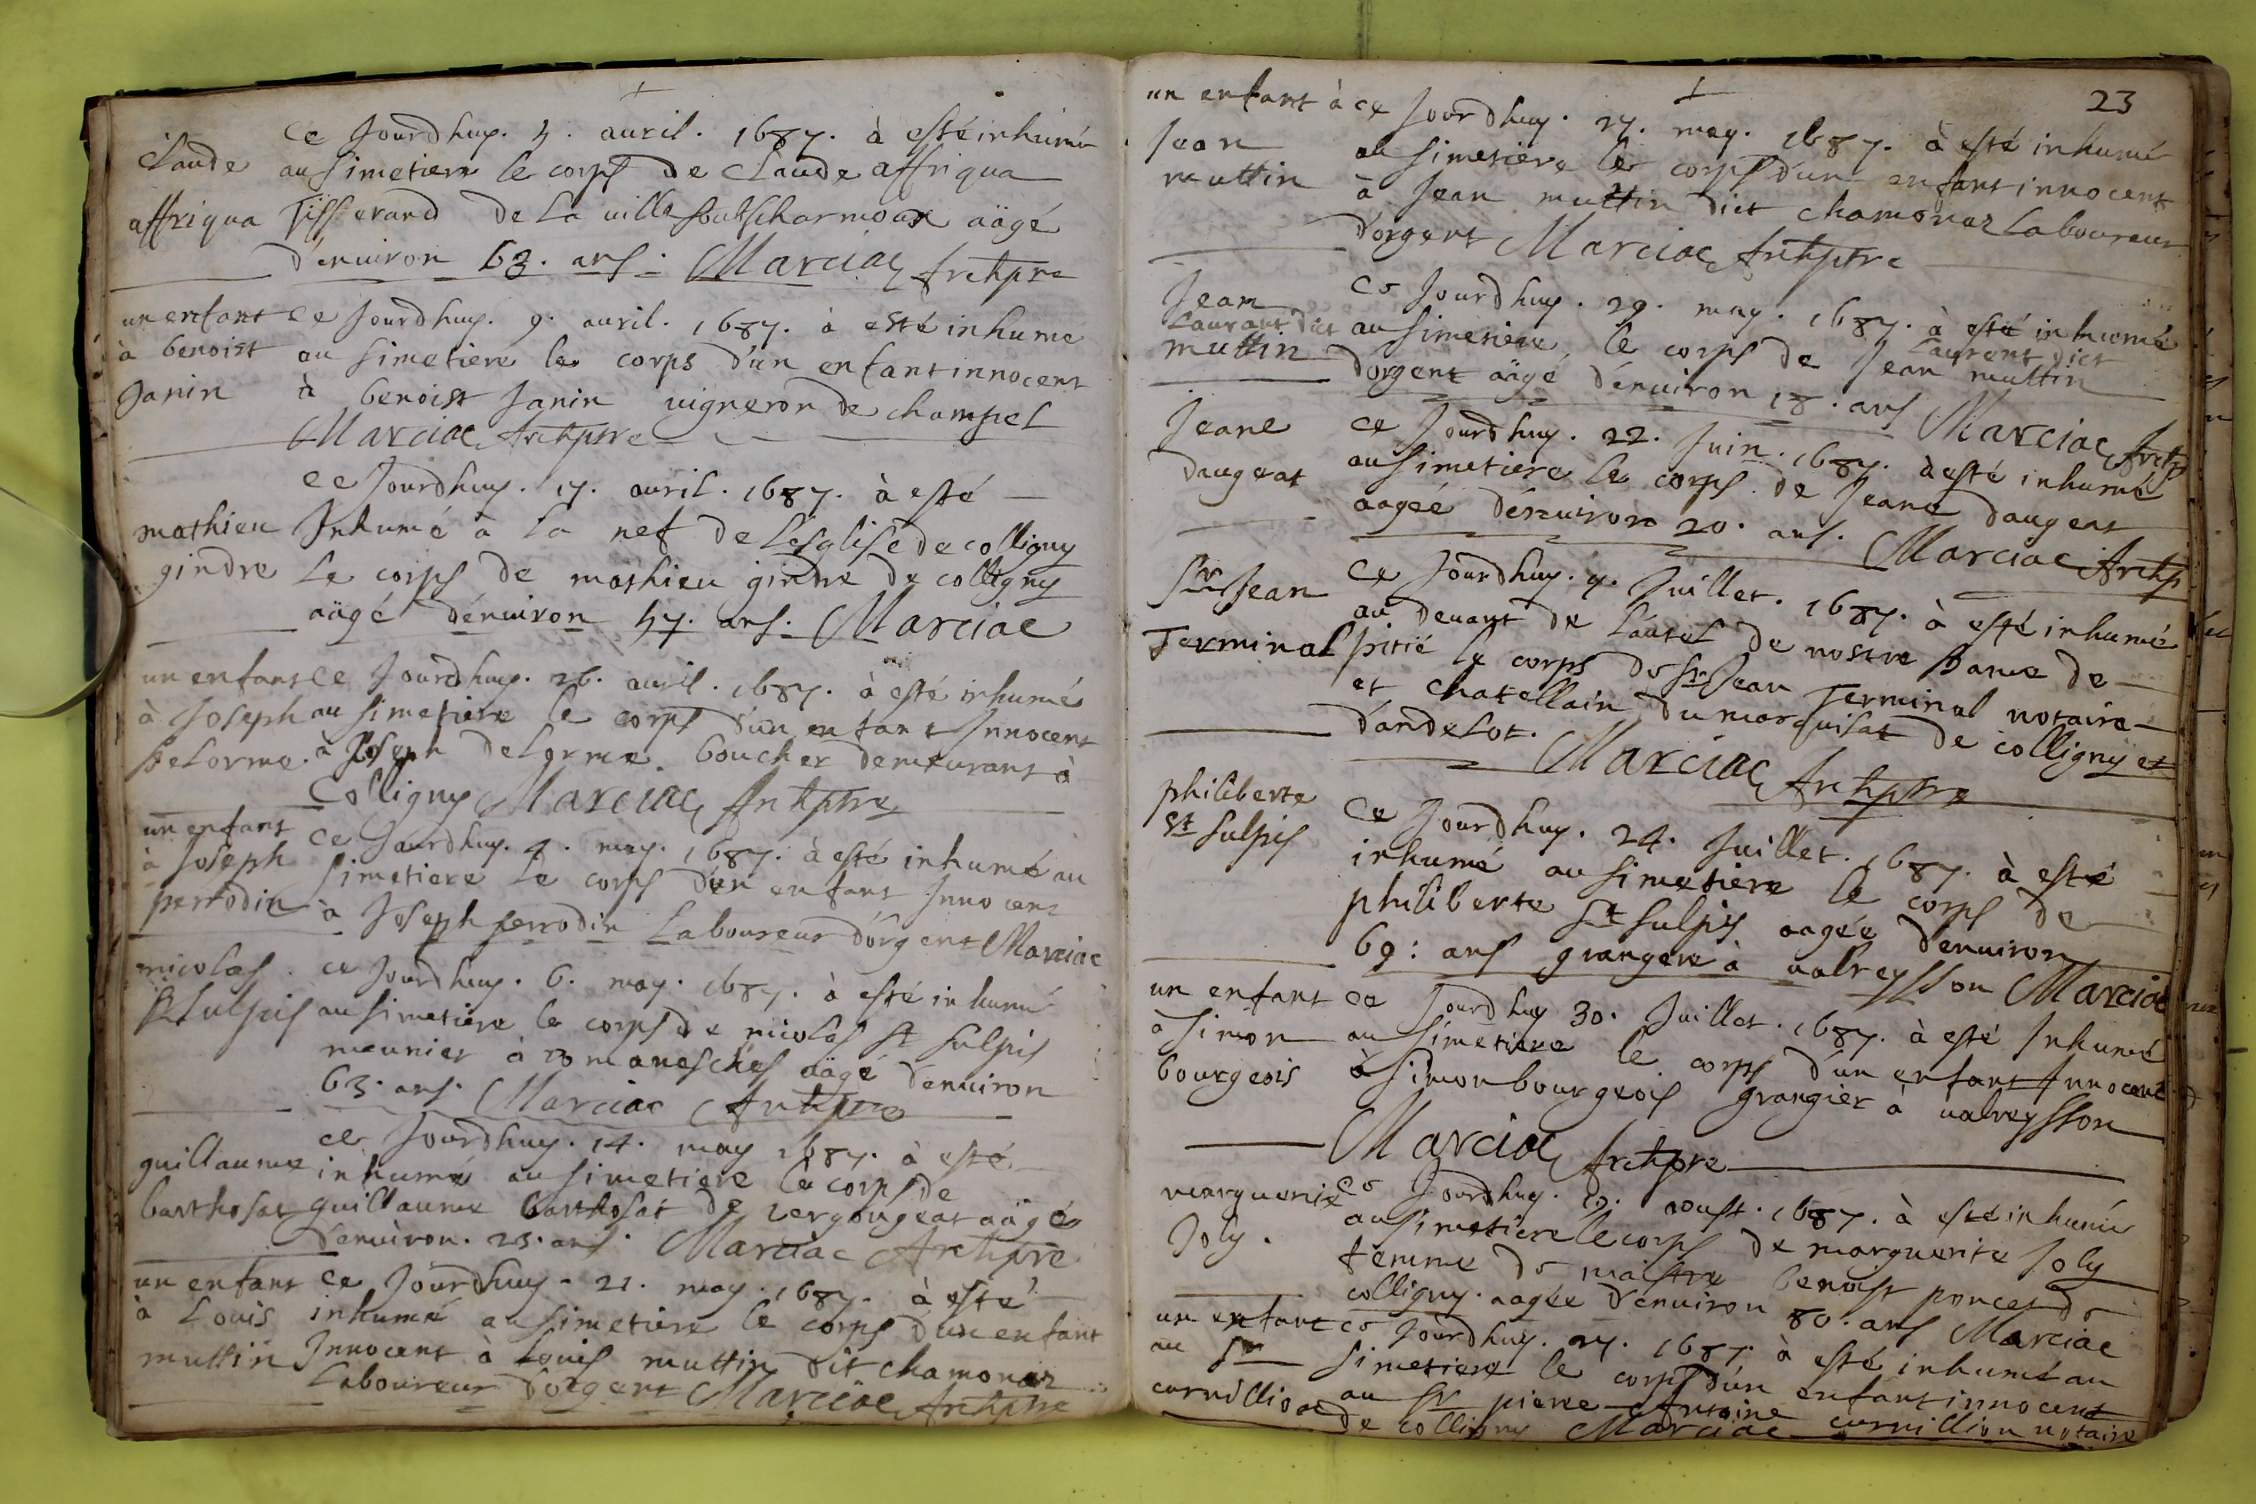 Claude
affriqua
ce Jourdhuy. 5. auril. 1687. à esté inhumé
au simetiere le corps de Claude affriqua
Tisserand de la uille soubs charmoux aägé
d'enuiron 63. ans. Marciac Archpre
un enfant
à benoist
Janin
ce Jourdhuy. 9. auril. 1687. à esté inhumé
au simetiere le corps d'un enfant innocent
à benoist Janin uigneron de champel
Marciac Archptre
mathieu
gindre
ce Jourdhuy. 17. auril. 1687. à esté
Inhumé à la nef de l'esglise de colligny
le corps de mathieu gindre de colligny
aägé d'enuiron 57. ans. Marciac
un enfant
à Joseph
delorme.
ce Jourdhuy. 26. auril. 1687. à esté inhumé
au simetiere le corps d'un enfant Innocent
à Joseph delorme. boucher demeurant à
Colligny Marciac Archptre
un enfant
à Joseph
perrodin
ce Jourdhuy. 4. may. 1687. à esté inhumé au
simetiere le corps d'un enfant Innocent
à Joseph perrodin Laboureur d'orgent Marciac
nicolas.
St sulpis
ce Jourdhuy. 6. may. 1687. à esté inhumé
au simetiere le corps de nicolas St sulpis
meunier à romanesches aägé d'enuiron
63. ans. Marciac Archptre
guillaume
barthosat
ce Jourdhuy. 14. may 1687. à esté
inhumé au simetiere le corps de
guillaume barthosat de vergongeat aägé
d'enuiron. 25. ans. Marciac Archpre
un enfant
à Louis
muttin
ce Jourdhuy. 21. may. 1687. à esté
inhumé au simetiere le corps d'un enfant
Innocent à Louis muttin dit chamonaz
Laboureur d'orgent Marciac Archptre
23
un enfant à
Jean
muttin
ce Jourdhuy. 27. may. 1687. à esté inhumé
au simetiere le corps d'un enfant innocent
à Jean muttin dict chamonaz Laboureur
d'orgent Marciac Archptre
Jean
Laurant dict
muttin
ce Jourdhuy. 29. may. 1687. à esté inhumé
au simetiere le corps de Jean Laurent dict muttin
d'orgent aägé d'enuiron 18. ans Marciac Archp
Jeane
daugeat
ce Jourdhuy. 22. Juin. 1687. à esté inhumé
au simetiere le corps de Jeane daugeat
aagée d'enuiron 20. ans. Marciac Archp
Sr Jean
Terminal
ce Jourdhuy. 7. Juillet. 1687. à esté inhumé
au deuant de l'autel de nostre Dame de
pitié le corps de Sr Jean Terminal notaire
et chatellain du marquisat de colligny et
d'andelot. Marciac Archptre
philiberte
St sulpis
ce Jourdhuy. 24. Juillet. 1687. à esté
inhumé au simetiere le corps de
philiberte St sulpis aagée d'enuiron
69: ans grangere à ualreysson Marciac
un enfant
à simon
bourgeois
ce Jourdhuy 30. Juillet. 1687. à esté Inhumé
au simetiere le corps d'un enfant Innocent
à simon bourgeois grangier à ualreysson
Marciac Archpre
marguerite
Joly.
ce Jourdhuy. aoust. 1687. à esté inhumé
au simetiere le corps de marguerite Joly
femme de maistre benoist poncet de
colligny. aagée d'enuiron 80. ans Marciac
un enfant
au Sr
curnillion
ce Jourdhuy. 27. 1687. à esté inhumé au
simetiere le corps d'un enfant innocent
au Sr pierre Antoine curnillion notaire
de colligny Marciac